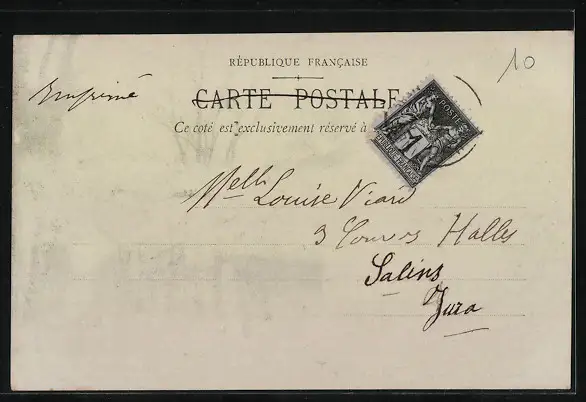 10
RÉPUBLIQUE FRANÇAISE
Imprimé
CARTE POSTALE
Ce coté est exclusivement réservé à
POSTES
1
REPUBLIQUE FRANÇAISE
Melle Louise Viard
3 Halles
Salins
Jura